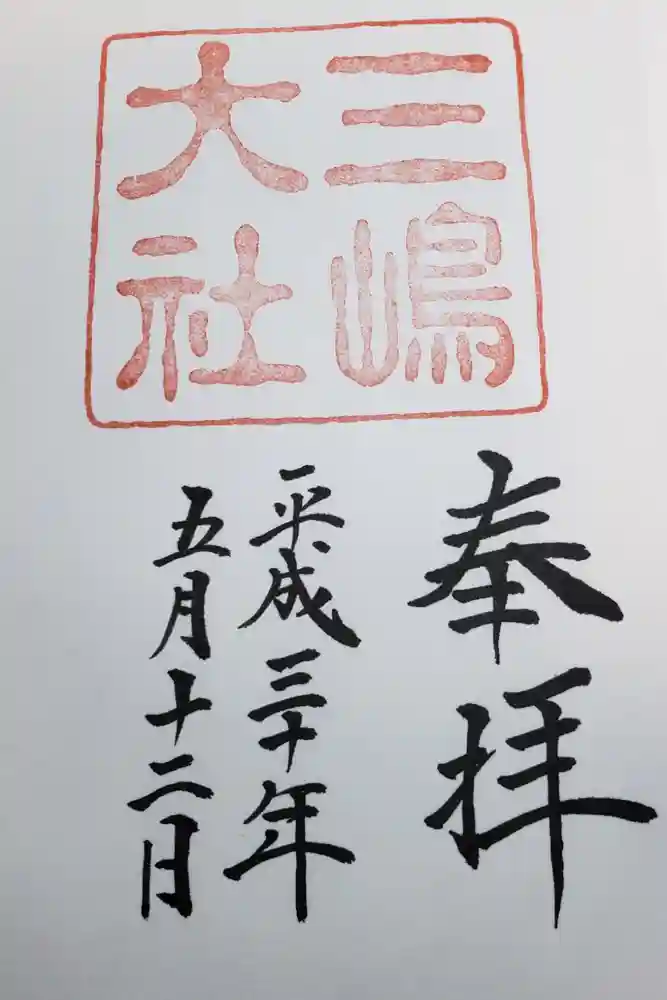 三嶋
大社
奉拝
平成三十年
五月十二日